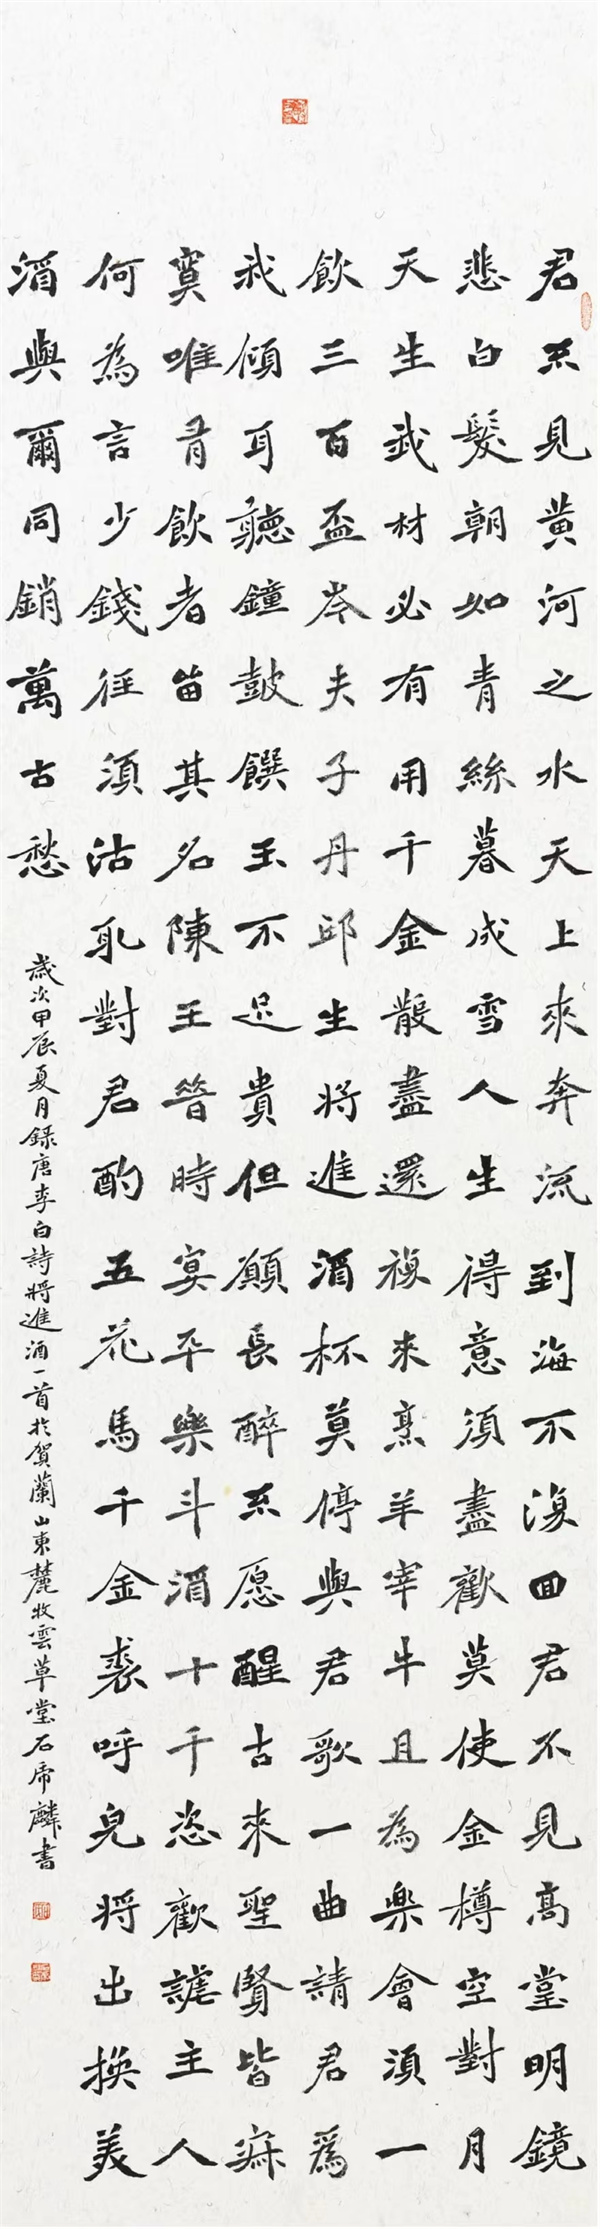 君不見黃河之水天上來奔流到海不復回君不見高堂明鏡
悲白髮朝如青絲暮成雪人生得意須盡歡莫使金樽空對月
天生我材必有用千金散盡還復來烹羊宰牛且為樂會須一
飲三百盃岑夫子丹邱生將進酒杯莫停與君歌一曲請君為
我傾耳聽鐘鼓饌玉不足貴但願長醉不愿醒古來聖賢皆寂
寞唯有飲者留其名陳王昔時宴平樂斗酒十千恣歡謔主人
何為言少錢徑須沽取對君酌五花馬千金裘呼兒將出換美
酒與爾同銷萬古愁
歲次甲辰夏月錄唐李白詩將進酒一首於賀蘭山東麓牧雲草堂石麟書